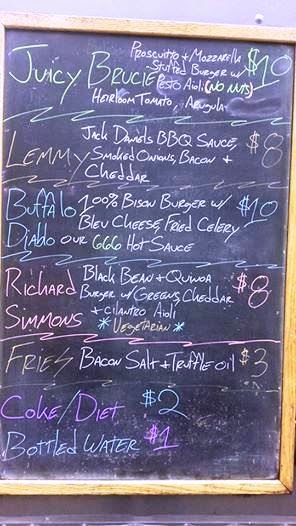 Prosciutto + Mozzarella
Juicy Brucie -Stuffed Burger w/ $10
Pesto Aioli (NO NUTS)
Heirloom Tomato, Arugula
Jack Daniels BBQ Sauce, $8
Lemmy Smoked Onions, Bacon +
Cheddar
Buffalo 100% Bison Burger w/ $10
Bleu Cheese, Fried Celery
Diablo our 666 Hot Sauce
Richard Black Bean + Quinoa $8
Burger w/ Greens, Cheddar
Simmons + Cilantro Aioli
* Vegetarian *
Fries Bacon Salt + Truffle oil $3
Coke/Diet $2
Bottled Water $1